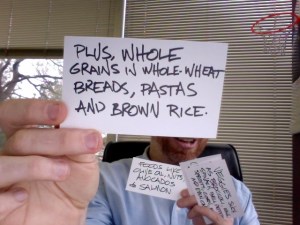 PLUS, WHOLE
GRAINS IN WHOLE-WHEAT
BREADS, PASTAS
AND BROWN RICE.
FOODS LIKE
OLIVE OIL, NUTS
AVOCADOS
& SALMON